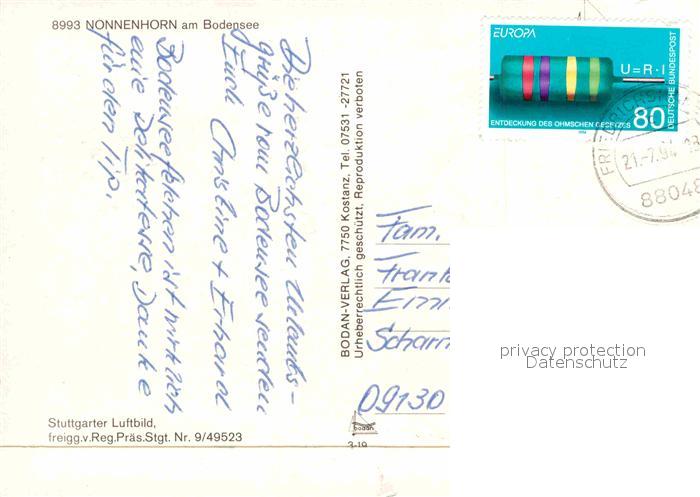 8993 NONNENHORN am Bodensee
Die herzlichsten Urlaubs-
grüße vom Bodensee senden
Euch Christine + Erhard
Bodenseefelchen ist wirklich
eine Delikatesse, Danke
für den Tip.
Stuttgarter Luftbild,
freigg.v.Reg.Präs.Stgt. Nr. 9/49523
BODAN-VERLAG, 7750 Kostanz, Tel. 07531 -27721
Urheberrechtlich geschützt, Reproduktion verboten
bodan
3-19
EUROPA
U=R·I
ENTDECKUNG DES OHMSCHEN GESETZES
80
DEUTSCHE BUNDESPOST
21.-7.94
88048
Fam.
Frank
Emi
Scharn
09130
privacy protection
Datenschutz